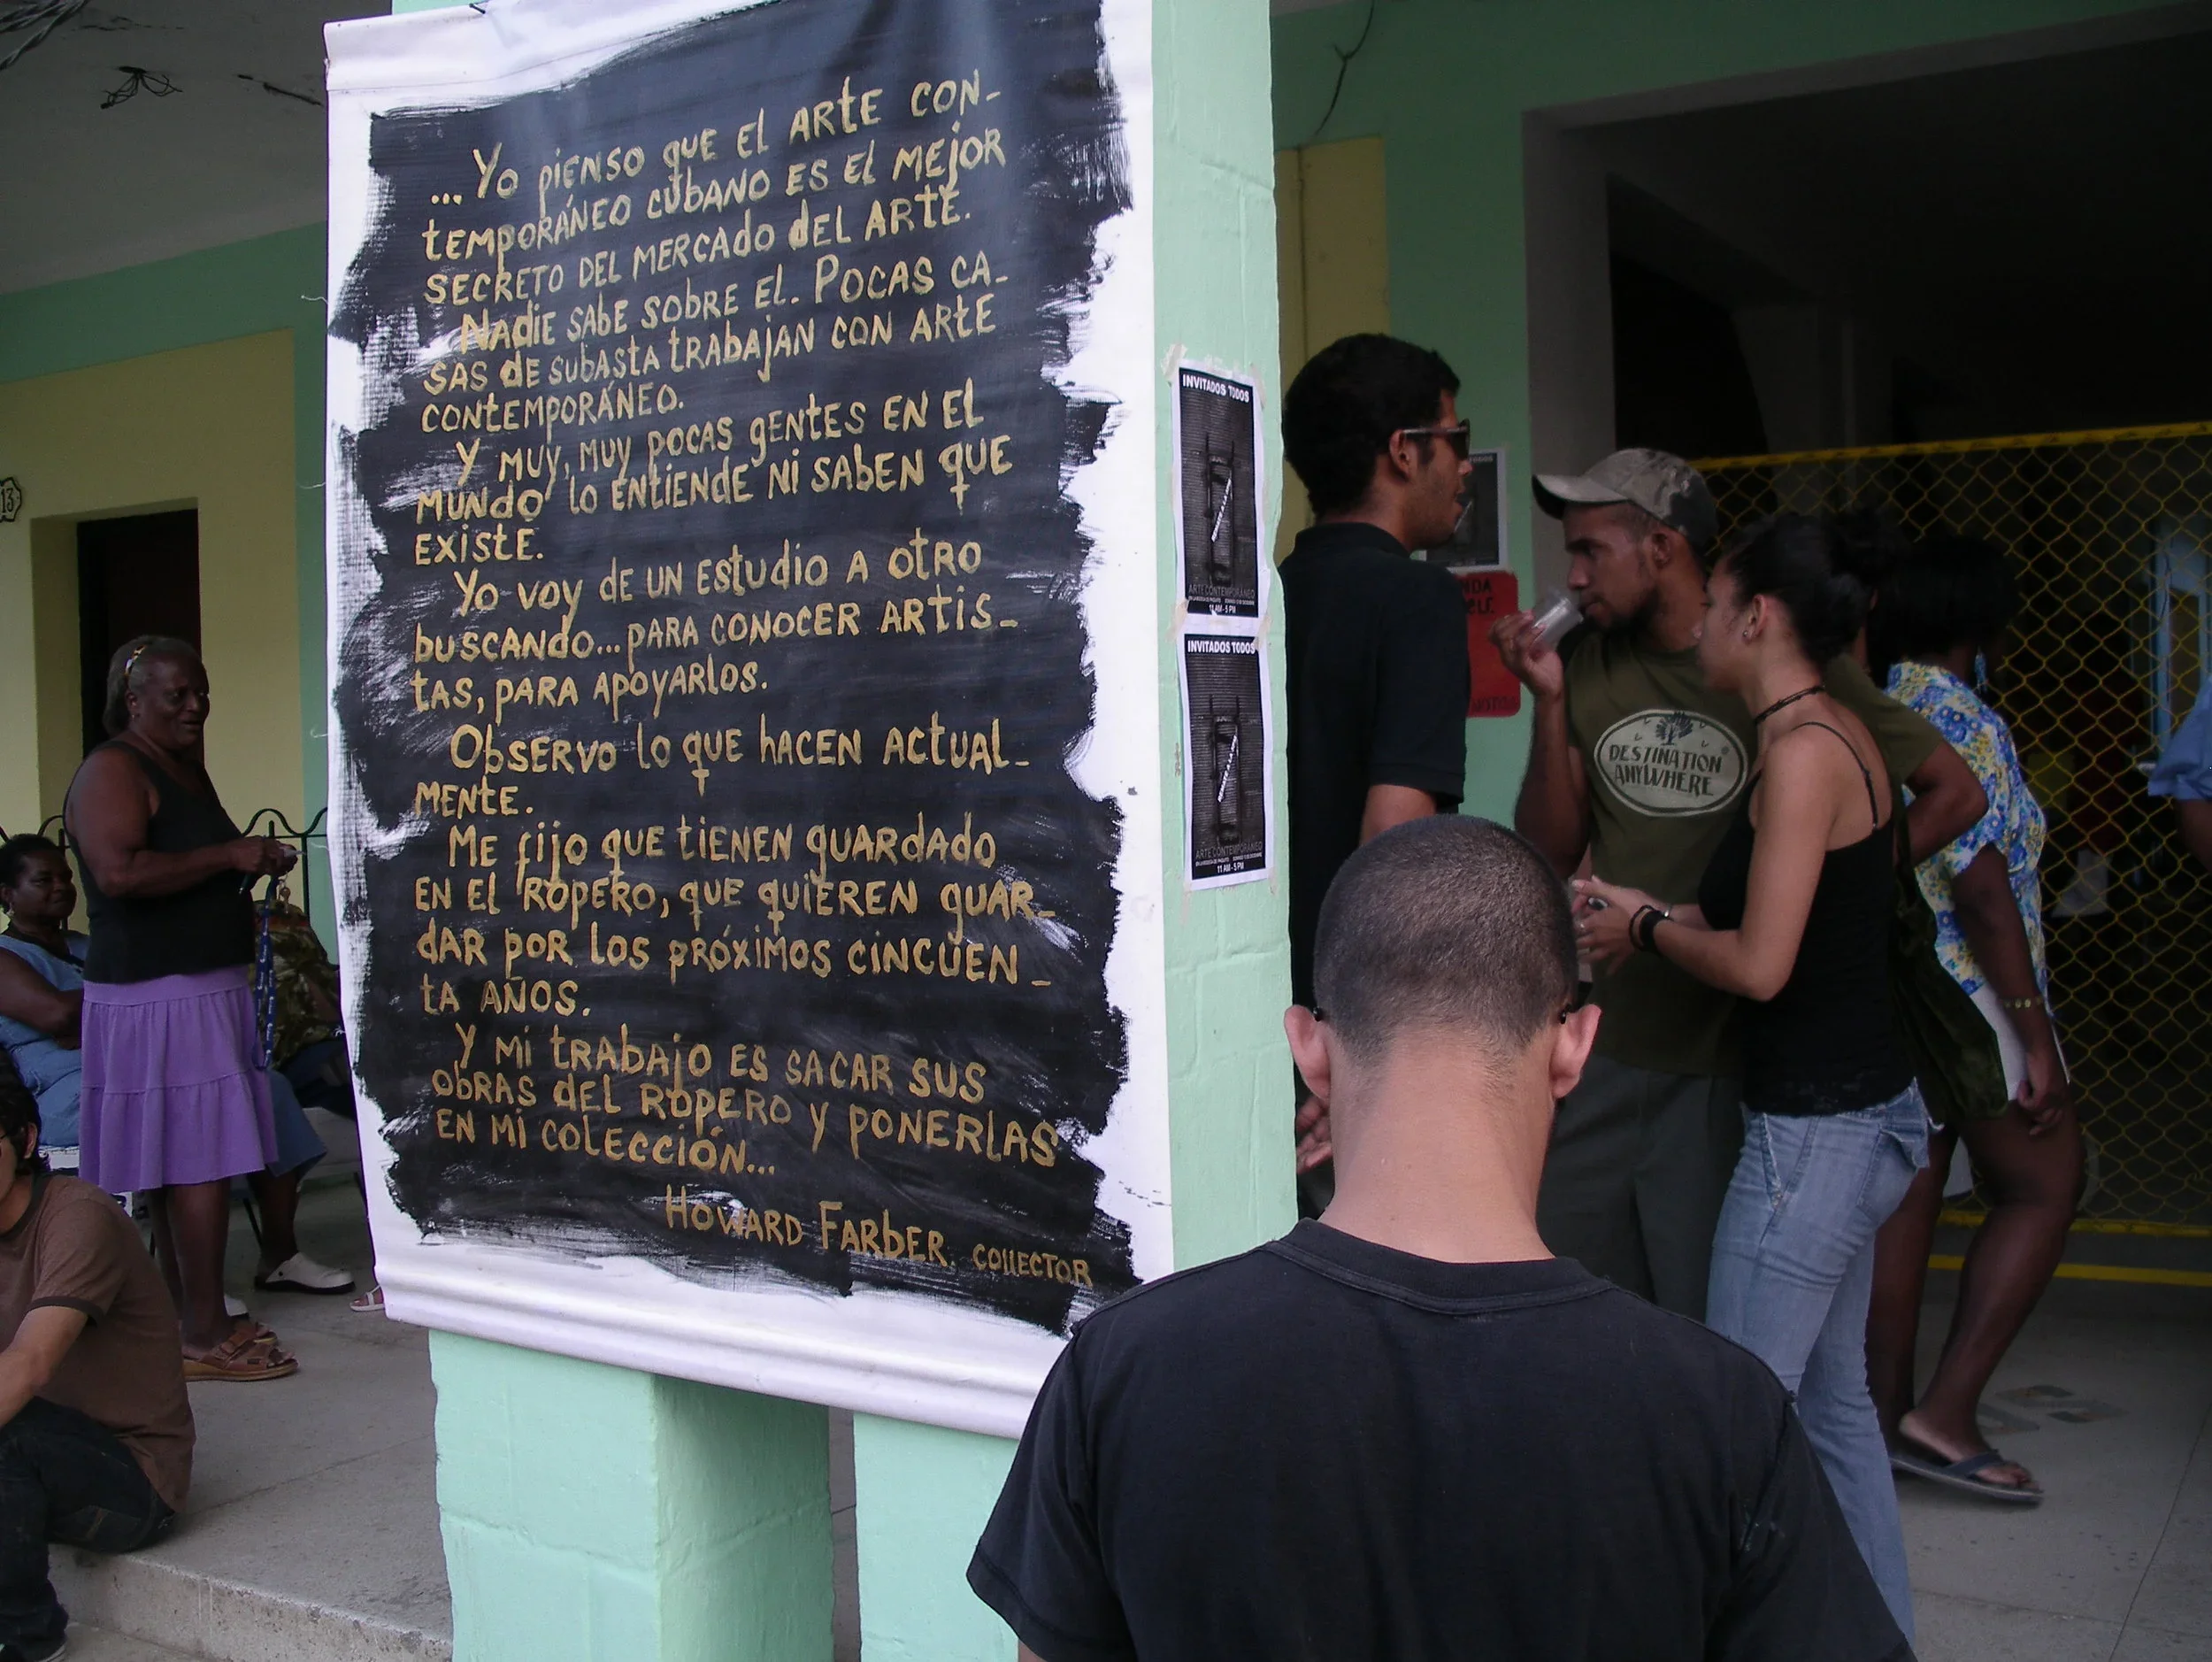 ...Yo pienso que el ARTE CON-
TEMPORÁNEO CUBANO ES El MEjOR
SECRETO DEL MERCAdo dEL ARTE.
NAdiE SAbE SOBRE El. POCAS CA-
SAS dE SUBASTA TRABAJAN CON ARTE
CONTEMPORÁNEO.
Y MUY, MUY POCAS gENtES EN El
MUNDO lO ENtiENdE Ni SABEN QUE
EXiSTE.
Yo voy DE UN EStudio A OtRO
bUSCANdO...PARA CONOCER ARTiS-
TAS, PARA APOYARlOS.
ObSERVO lo QUE hACEN ACTUAL-
MENTE.
ME fijo QUE tiENEN gUARdAdO
EN El ROPERO, QUE QUiEREN gUAR-
dAR POR los PRÓXiMOS CiNCUEN-
TA AÑOS.
Y Mi TRAbAjO ES SACAR SUS
ObRAS dEL ROPERO Y PONERLAS
EN Mi COLECCiÓN...
HOWARD FARbER. COllECTOR
INVITADOS TODOS
ARTE CONTEMPORÁNEO
11 AM - 5 PM
INVITADOS TODOS
ARTE CONTEMPORÁNEO
11 AM - 5 PM
DESTINATION
ANYWHERE
13